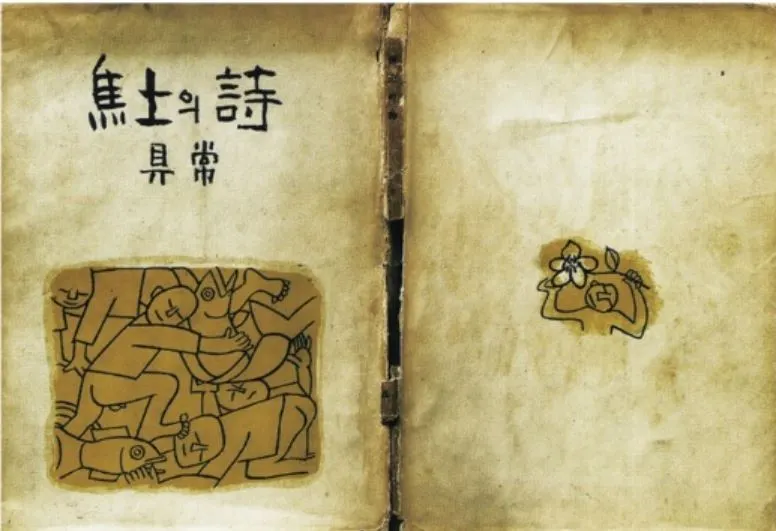 焦土의 詩
具常